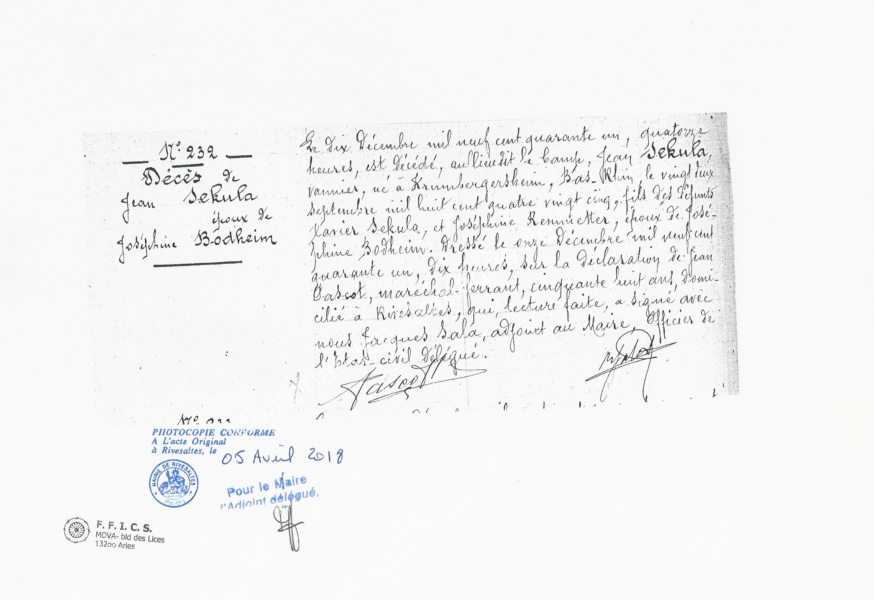 N° 232
Décès de
Jean Sekula
époux de
Joséphine Bodheim
Le dix Décembre mil neuf cent quarante un, quatorze
heures, est décédé, au lieu dit le Camp, Jean Sekula,
vannier, né à Krumbergersheim, Bas-Rhin, le vingt deux
septembre mil huit cent quatre vingt cinq, fils des défunts
Xavier Sekula, et Joséphine Renmetter, époux de José-
phine Bodheim. Dressé le onze Décembre mil neuf cent
quarante un, dix heures, sur la déclaration de Jean
Pascot, maréchal-ferrant, cinquante huit ans, domi-
cilié à Rivesaltes, qui, lecture faite, a signé avec
nous Jacques Sala, adjoint au Maire, Officier de
l'Etat-civil délégué.
Pascot
PHOTOCOPIE CONFORME
A L'acte Original
à Rivesaltes, le 05 Avril 2018
MAIRIE DE RIVESALTES
Pour le Maire
l'Adjoint délégué,
F. F. I. C. S.
MDVA- bld des Lices
13200 Arles